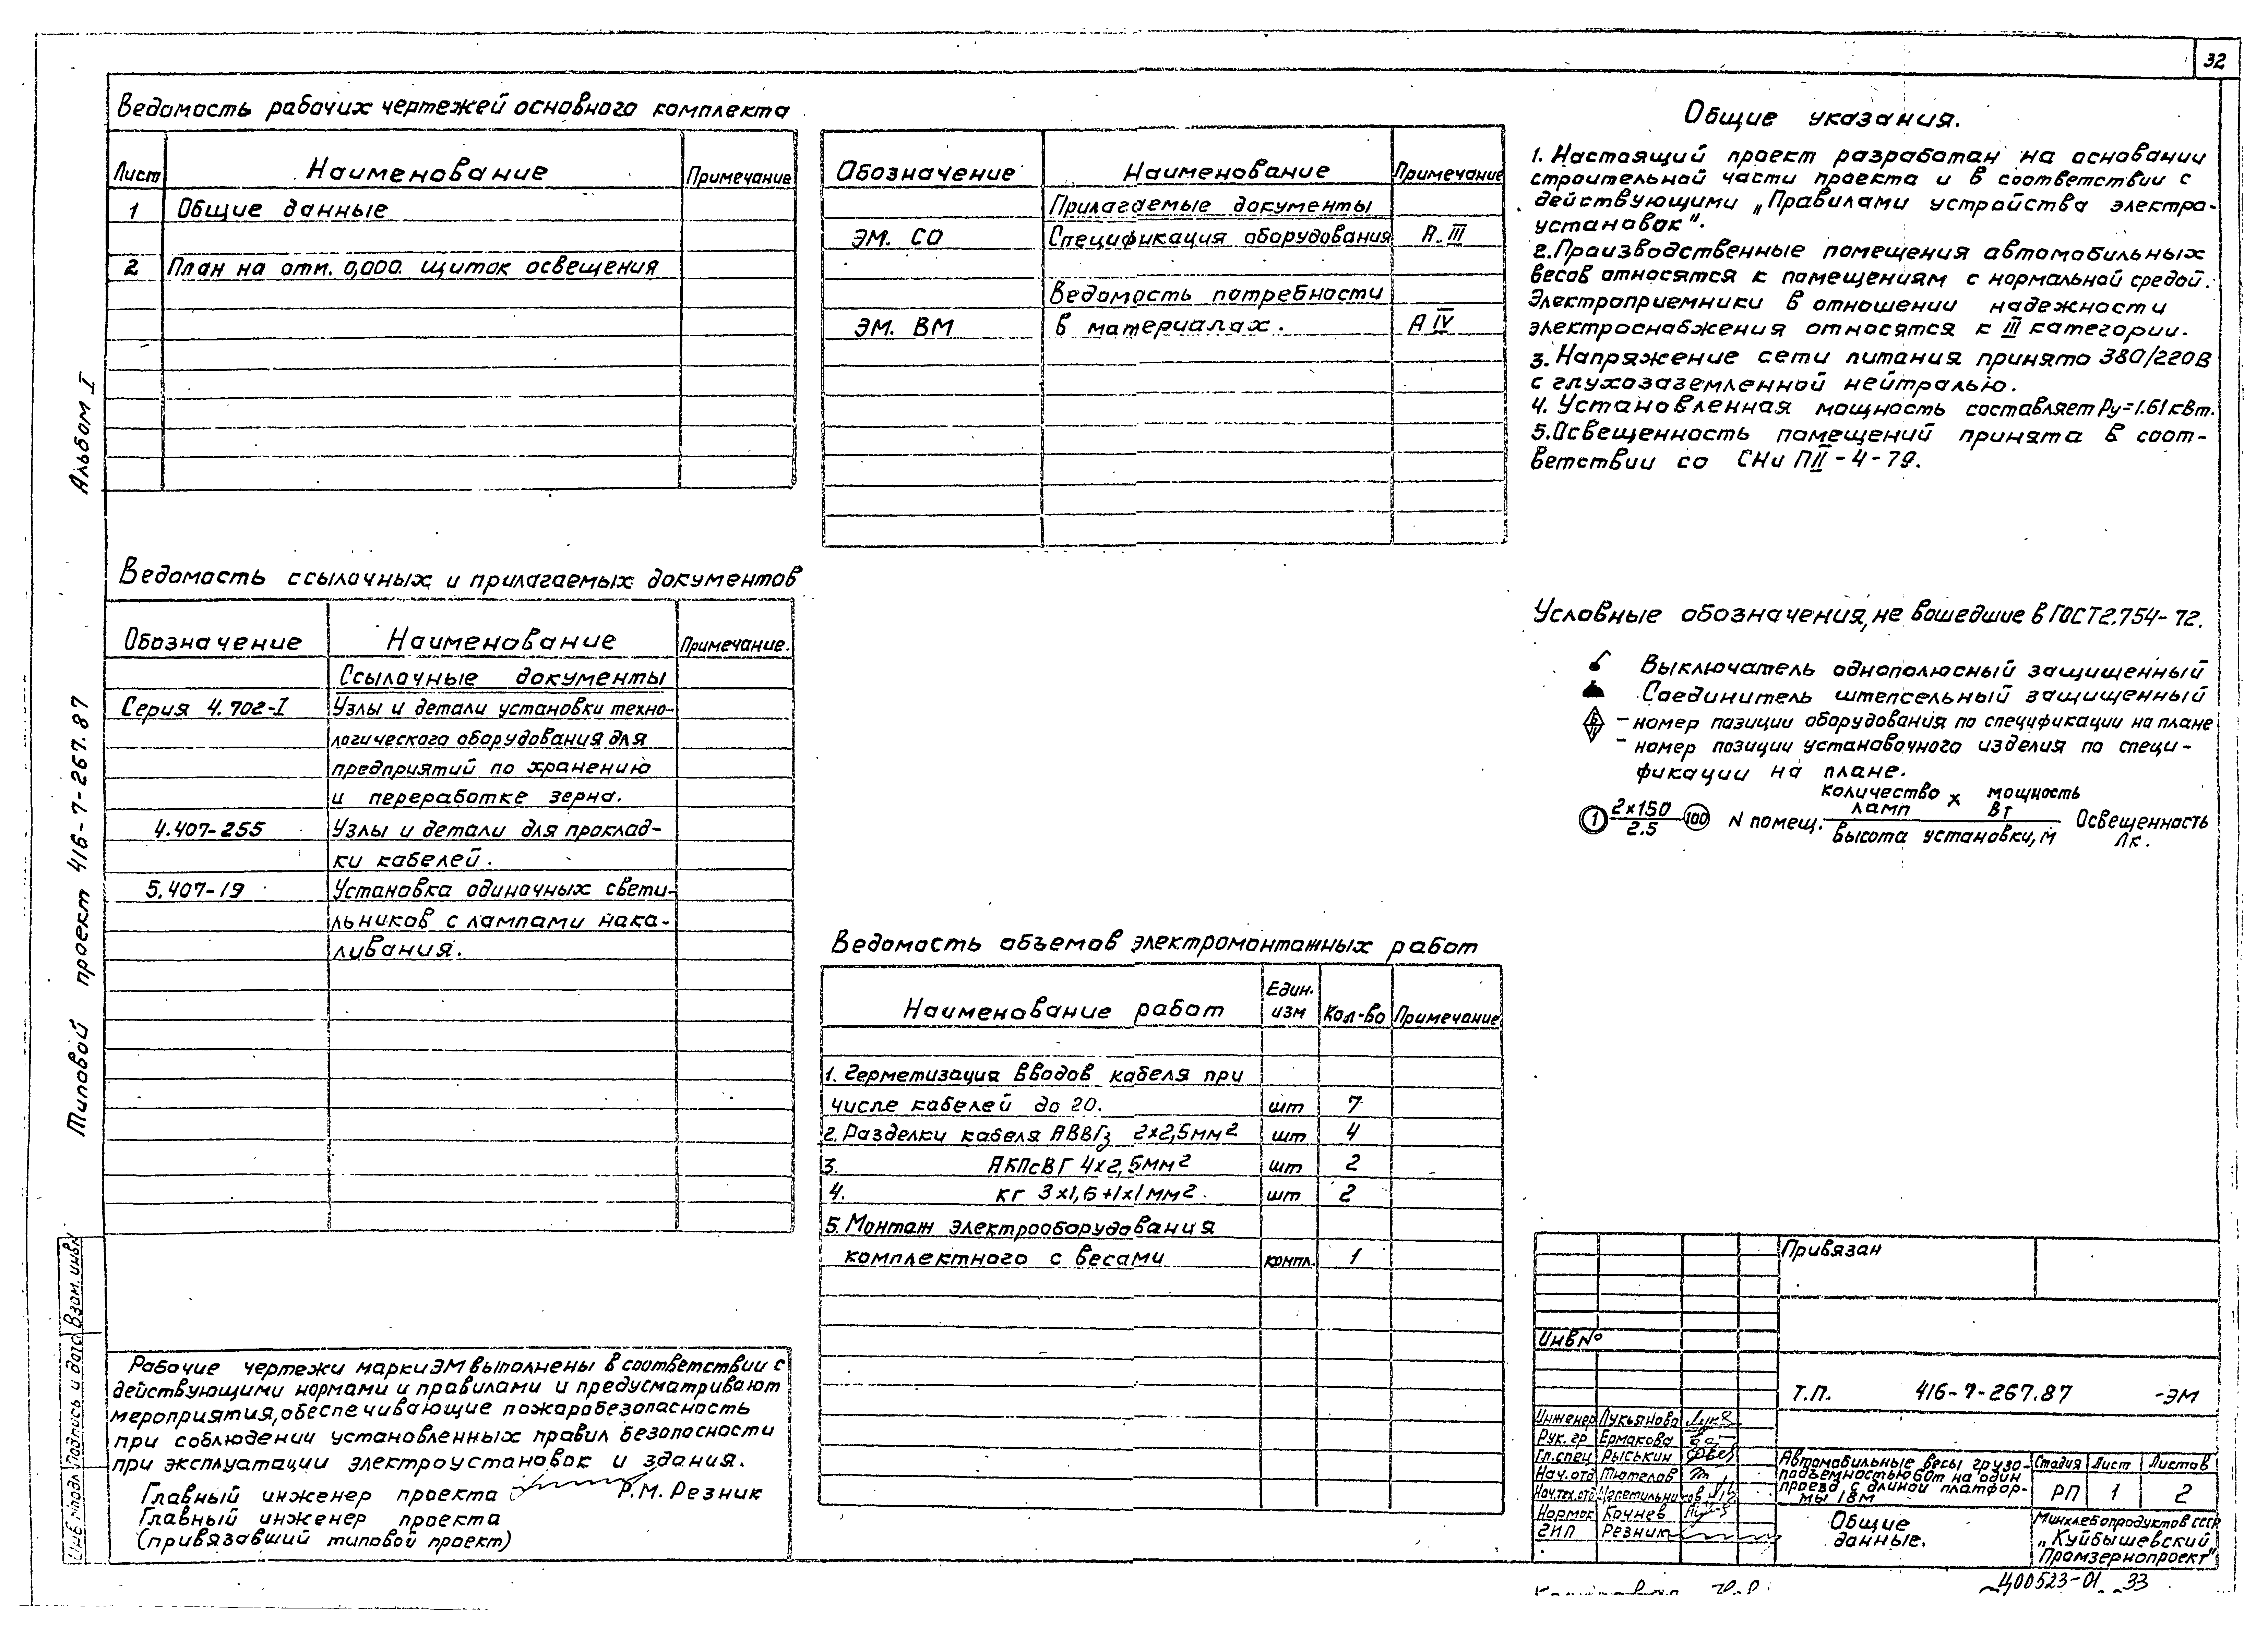 32
Ведомость рабочих чертежей основного комплекта
Лист Наименование Примечание
1 Общие данные
2 План на отм. 0,000. щиток освещения
Ведомость ссылочных и прилагаемых документов
Обозначение Наименование Примечание.
Ссылочные документы
Серия 4.702-I Узлы и детали установки техно-
логического оборудования для
предприятий по хранению
и переработке зерна.
4.407-255 Узлы и детали для проклад-
ки кабелей.
5.407-19 Установка одиночных свети-
льников с лампами нака-
ливания.
Рабочие чертежи марки ЭМ выполнены в соответствии с
действующими нормами и правилами и предусматривают
мероприятия, обеспечивающие пожаробезопасность
при соблюдении установленных правил безопасности
при эксплуатации электроустановок и здания.
Главный инженер проекта Р.М. Резник
Главный инженер проекта
(привязавший типовой проект)
Обозначение Наименование Примечание
Прилагаемые документы
ЭМ. СО Спецификация оборудования А. III
Ведомость потребности
ЭМ. ВМ в материалах. А IV
Ведомость объемов электромонтажных работ
Наименование работ Един. изм Кол-во Примечание
1. Герметизация вводов кабеля при
числе кабелей до 20. шт 7
2. Разделки кабеля АВВГз 2х2,5мм2 шт 4
3. АКПсВГ 4х2,5мм2 шт 2
4. КГ 3х1,6+1х1мм2 шт 2
5. Монтаж электрооборудования
комплектного с весами компл. 1
Общие указания.
1. Настоящий проект разработан на основании
строительной части проекта и в соответствии с
действующими „Правилами устройства электро-
установок".
2. Производственные помещения автомобильных
весов относятся к помещениям с нормальной средой.
Электроприемники в отношении надежности
электроснабжения относятся к III категории.
3. Напряжение сети питания принято 380/220В
с глухозаземленной нейтралью.
4. Установленная мощность составляет Ру=1.61 кВт.
5. Освещенность помещений принята в соот-
ветствии со СНиП II-4-79.
Условные обозначения, не вошедшие в ГОСТ 2.754-72.
Выключатель однополюсный защищенный
Соединитель штепсельный защищенный
- номер позиции оборудования по спецификации на плане
- номер позиции установочного изделия по специ-
фикации на плане.
1 2х150 / 2.5 100 N помещ. количество ламп х мощность Вт / высота установки, м Освещенность Лк.
Привязан
Инв №
Т.П. 416-7-267.87 -ЭМ
Инженер Лукьянова
Рук. гр Ермакова
Гл. спец Рыськин
Нач. отд Тютелов
Нач. тех. отд
Нормок Кочнев
ГИП Резник
Автомобильные весы грузо-
подъемностью 60т на один
проезд с длиной платфор-
мы 18м
Стадия Лист Листов
РП 1 2
Общие
данные.
Минхлебопродуктов СССР
„Куйбышевский
Промзернопроект"
Ц00523-01 33
Альбом I
Типовой проект 416-7-267.87
Инв. № подл Подпись и дата Взам. инв. №